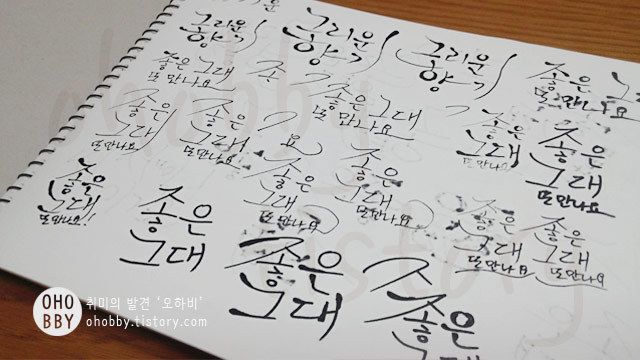 그리운
향기
그리운
향기
그리운
향기
좋은
또만나요
좋은 그대
또 만나요
조
좋은 그대
또 만나요
좋은
그대
또만나요
좋은
그대
또만나요
좋은
그대
또만나요
좋은
그대
또만나요
요
좋은
그대
또만나요
좋은
그대
또만나요
좋은
그대
또만나요!
좋은
그대
좋은
그대
또만나요
좋은
그대
또만나요
좋은
그대
조
좋은
OHO
BBY
취미의 발견 '오하비'
ohobby.tistory.com
ohobby
tistory